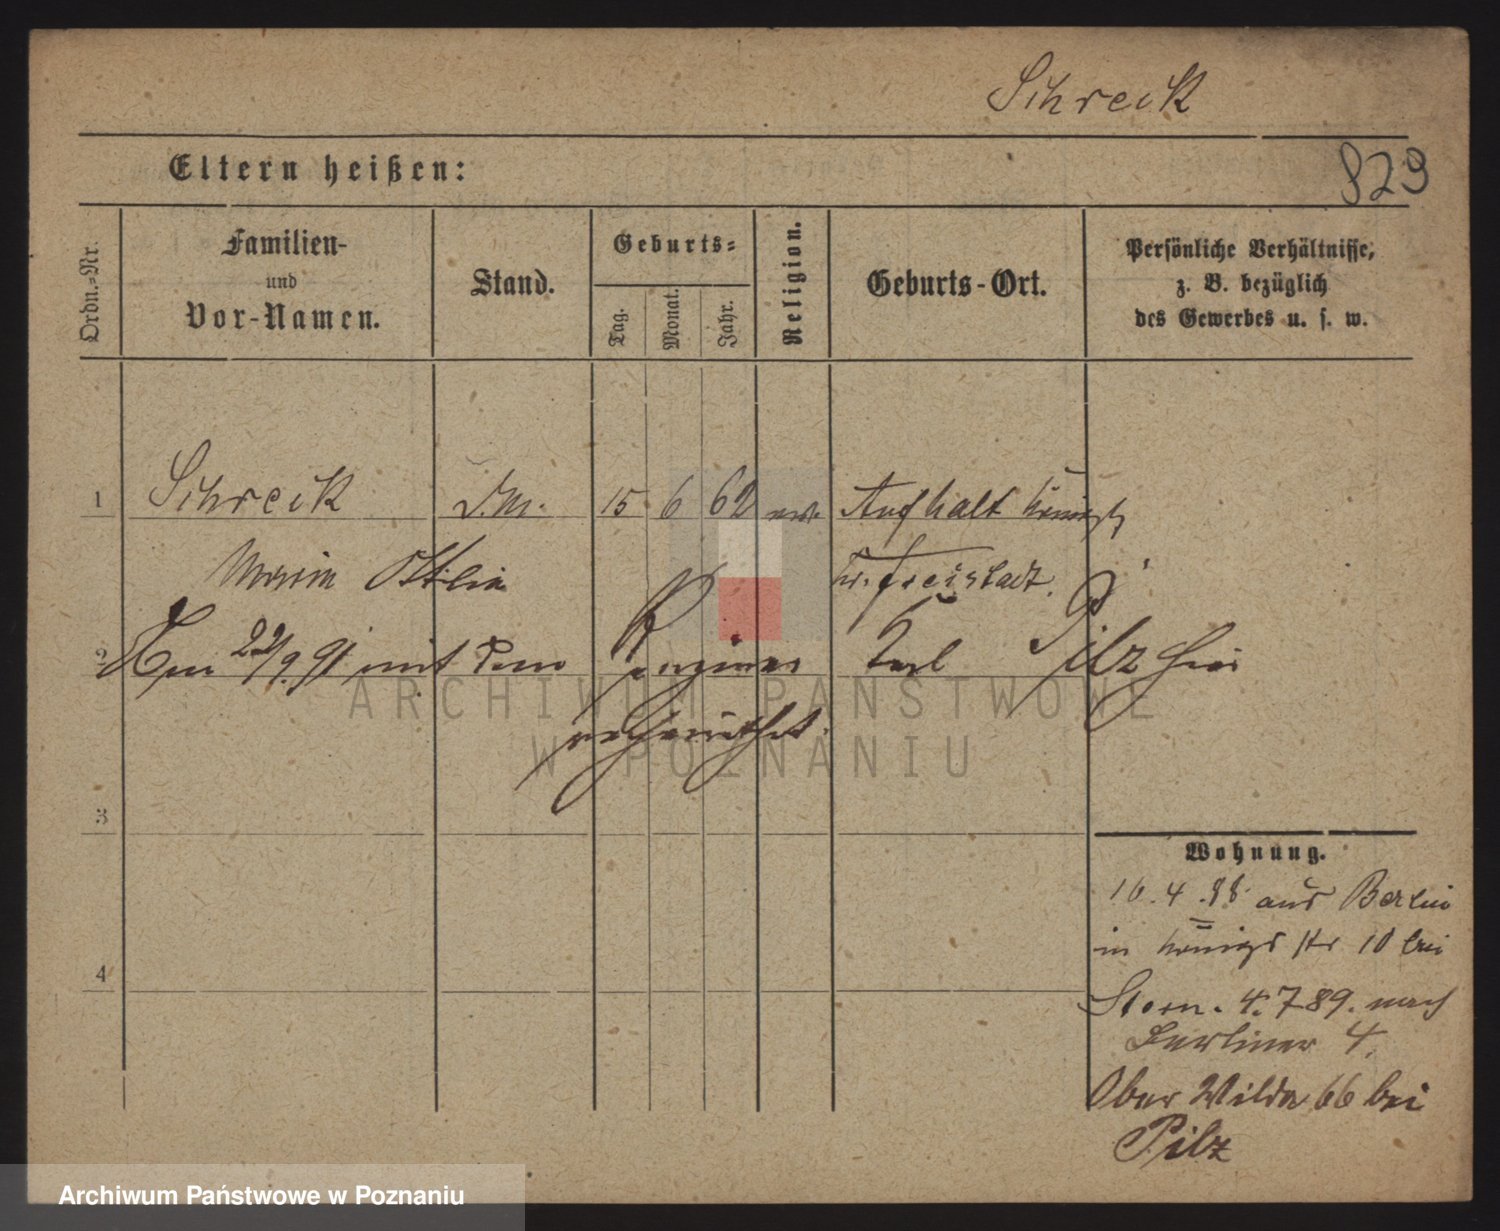 Schreck
829
Eltern heißen:
Ordn.-Nr.
Familien-
und
Vor-Namen.
Stand.
Geburts-
Tag.
Monat.
Jahr.
Religion.
Geburts-Ort.
Persönliche Verhältnisse,
z. B. bezüglich
des Gewerbes u. s. w.
1 Schreck D.M. 15 6 62 Aufhalt
Maria Ottilie Kr. Freistadt.
2 Am 22/9.91 mit dem Karl Pilz hier
verheirathet.
3
4
Wohnung.
16.4.88 aus Berlin
in Königs str 10 bei
Stern. 4.7 89. nach
Berliner 4.
Ober Wilda 66 bei
Pilz
ARCHIWUM PAŃSTWOWE
W POZNANIU
Archiwum Państwowe w Poznaniu